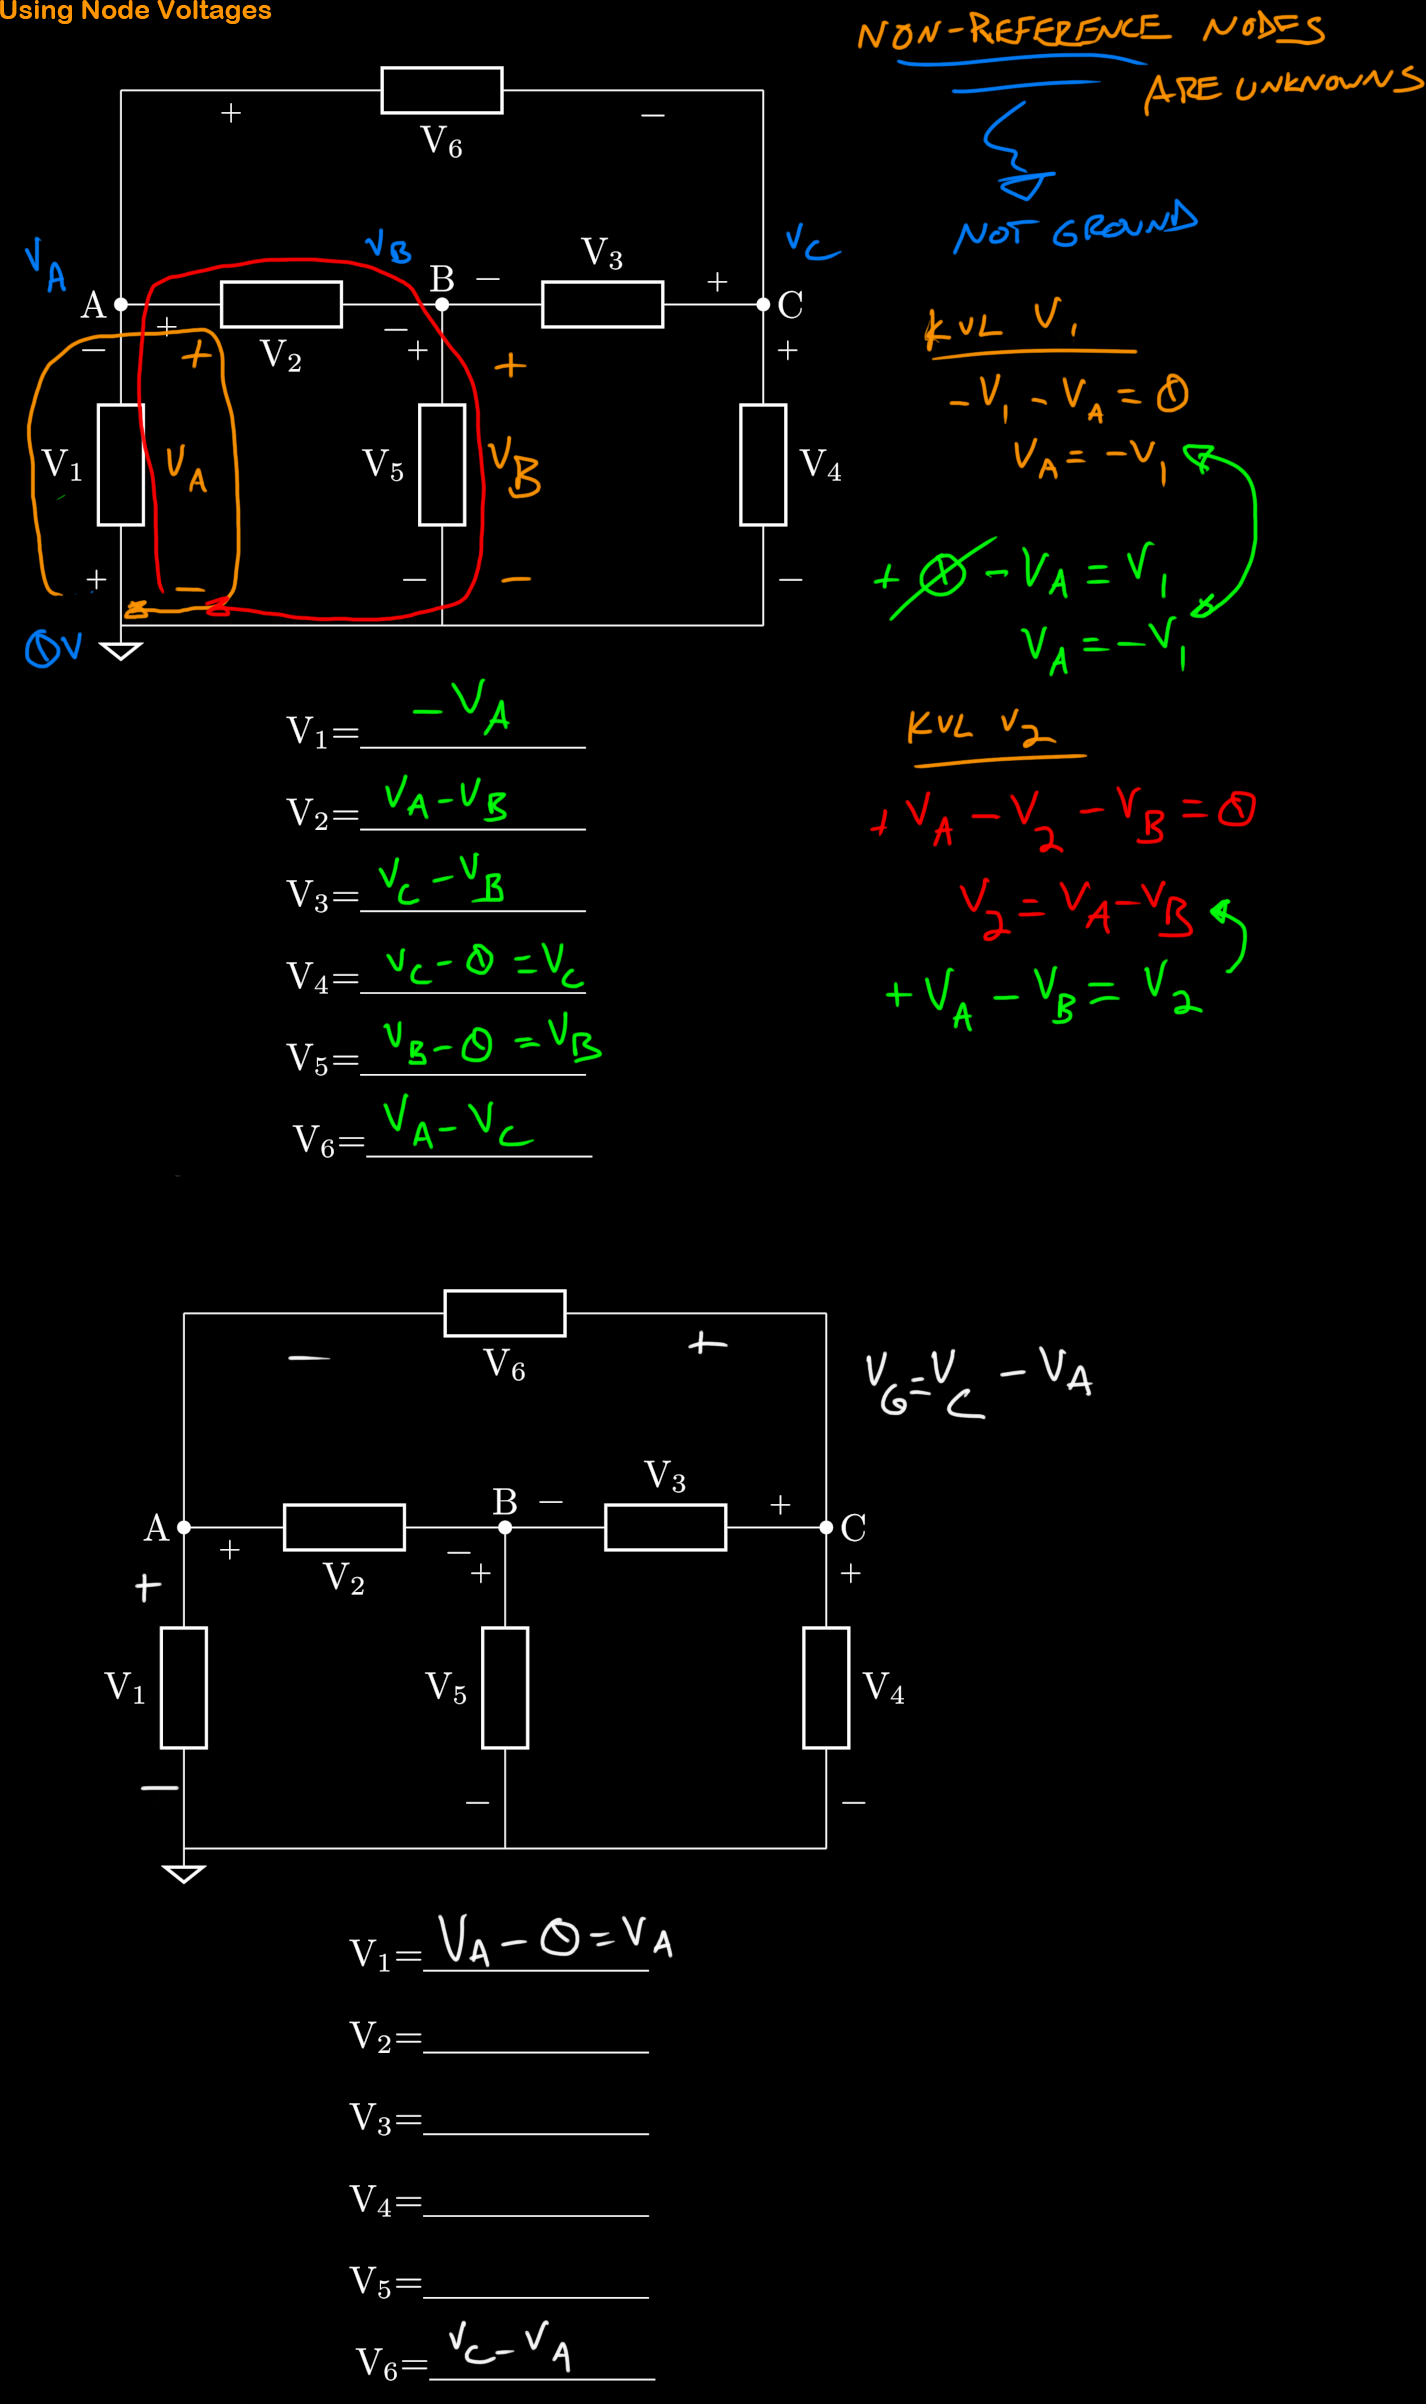 Using Node Voltages
NON-REFERENCE NODES
ARE UNKNOWNS
NOT GROUND
+ V₆ −
V_A
V_B
V_C
A
B − V₃ +
C
+ V₂ −
−
+
+
+
+
V₁
V_A
V₅
V_B
V₄
+
−
−
−
−
0V
KVL V₁
-V₁ - V_A = 0
V_A = -V₁
+ 0 - V_A = V₁
V_A = -V₁
KVL V₂
+V_A - V₂ - V_B = 0
V₂ = V_A - V_B
+V_A - V_B = V₂
V₁= -V_A
V₂= V_A - V_B
V₃= V_C - V_B
V₄= V_C - 0 = V_C
V₅= V_B - 0 = V_B
V₆= V_A - V_C
− V₆ +
V₆ = V_C - V_A
V₃
A
B −
+
C
+ V₂ −
+
+
+
V₁
V₅
V₄
−
−
−
V₁= V_A - 0 = V_A
V₂=
V₃=
V₄=
V₅=
V₆= V_C - V_A